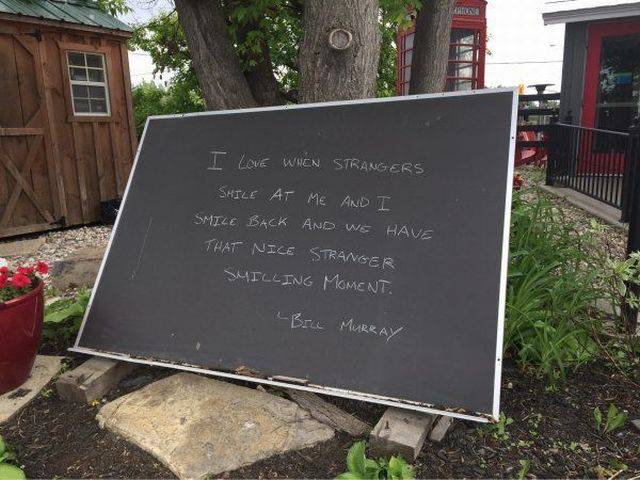 TELEPHONE
I LOVE WHEN STRANGERS
SMILE AT ME AND I
SMILE BACK AND WE HAVE
THAT NICE STRANGER
SMILLING MOMENT.
-BILL MURRAY